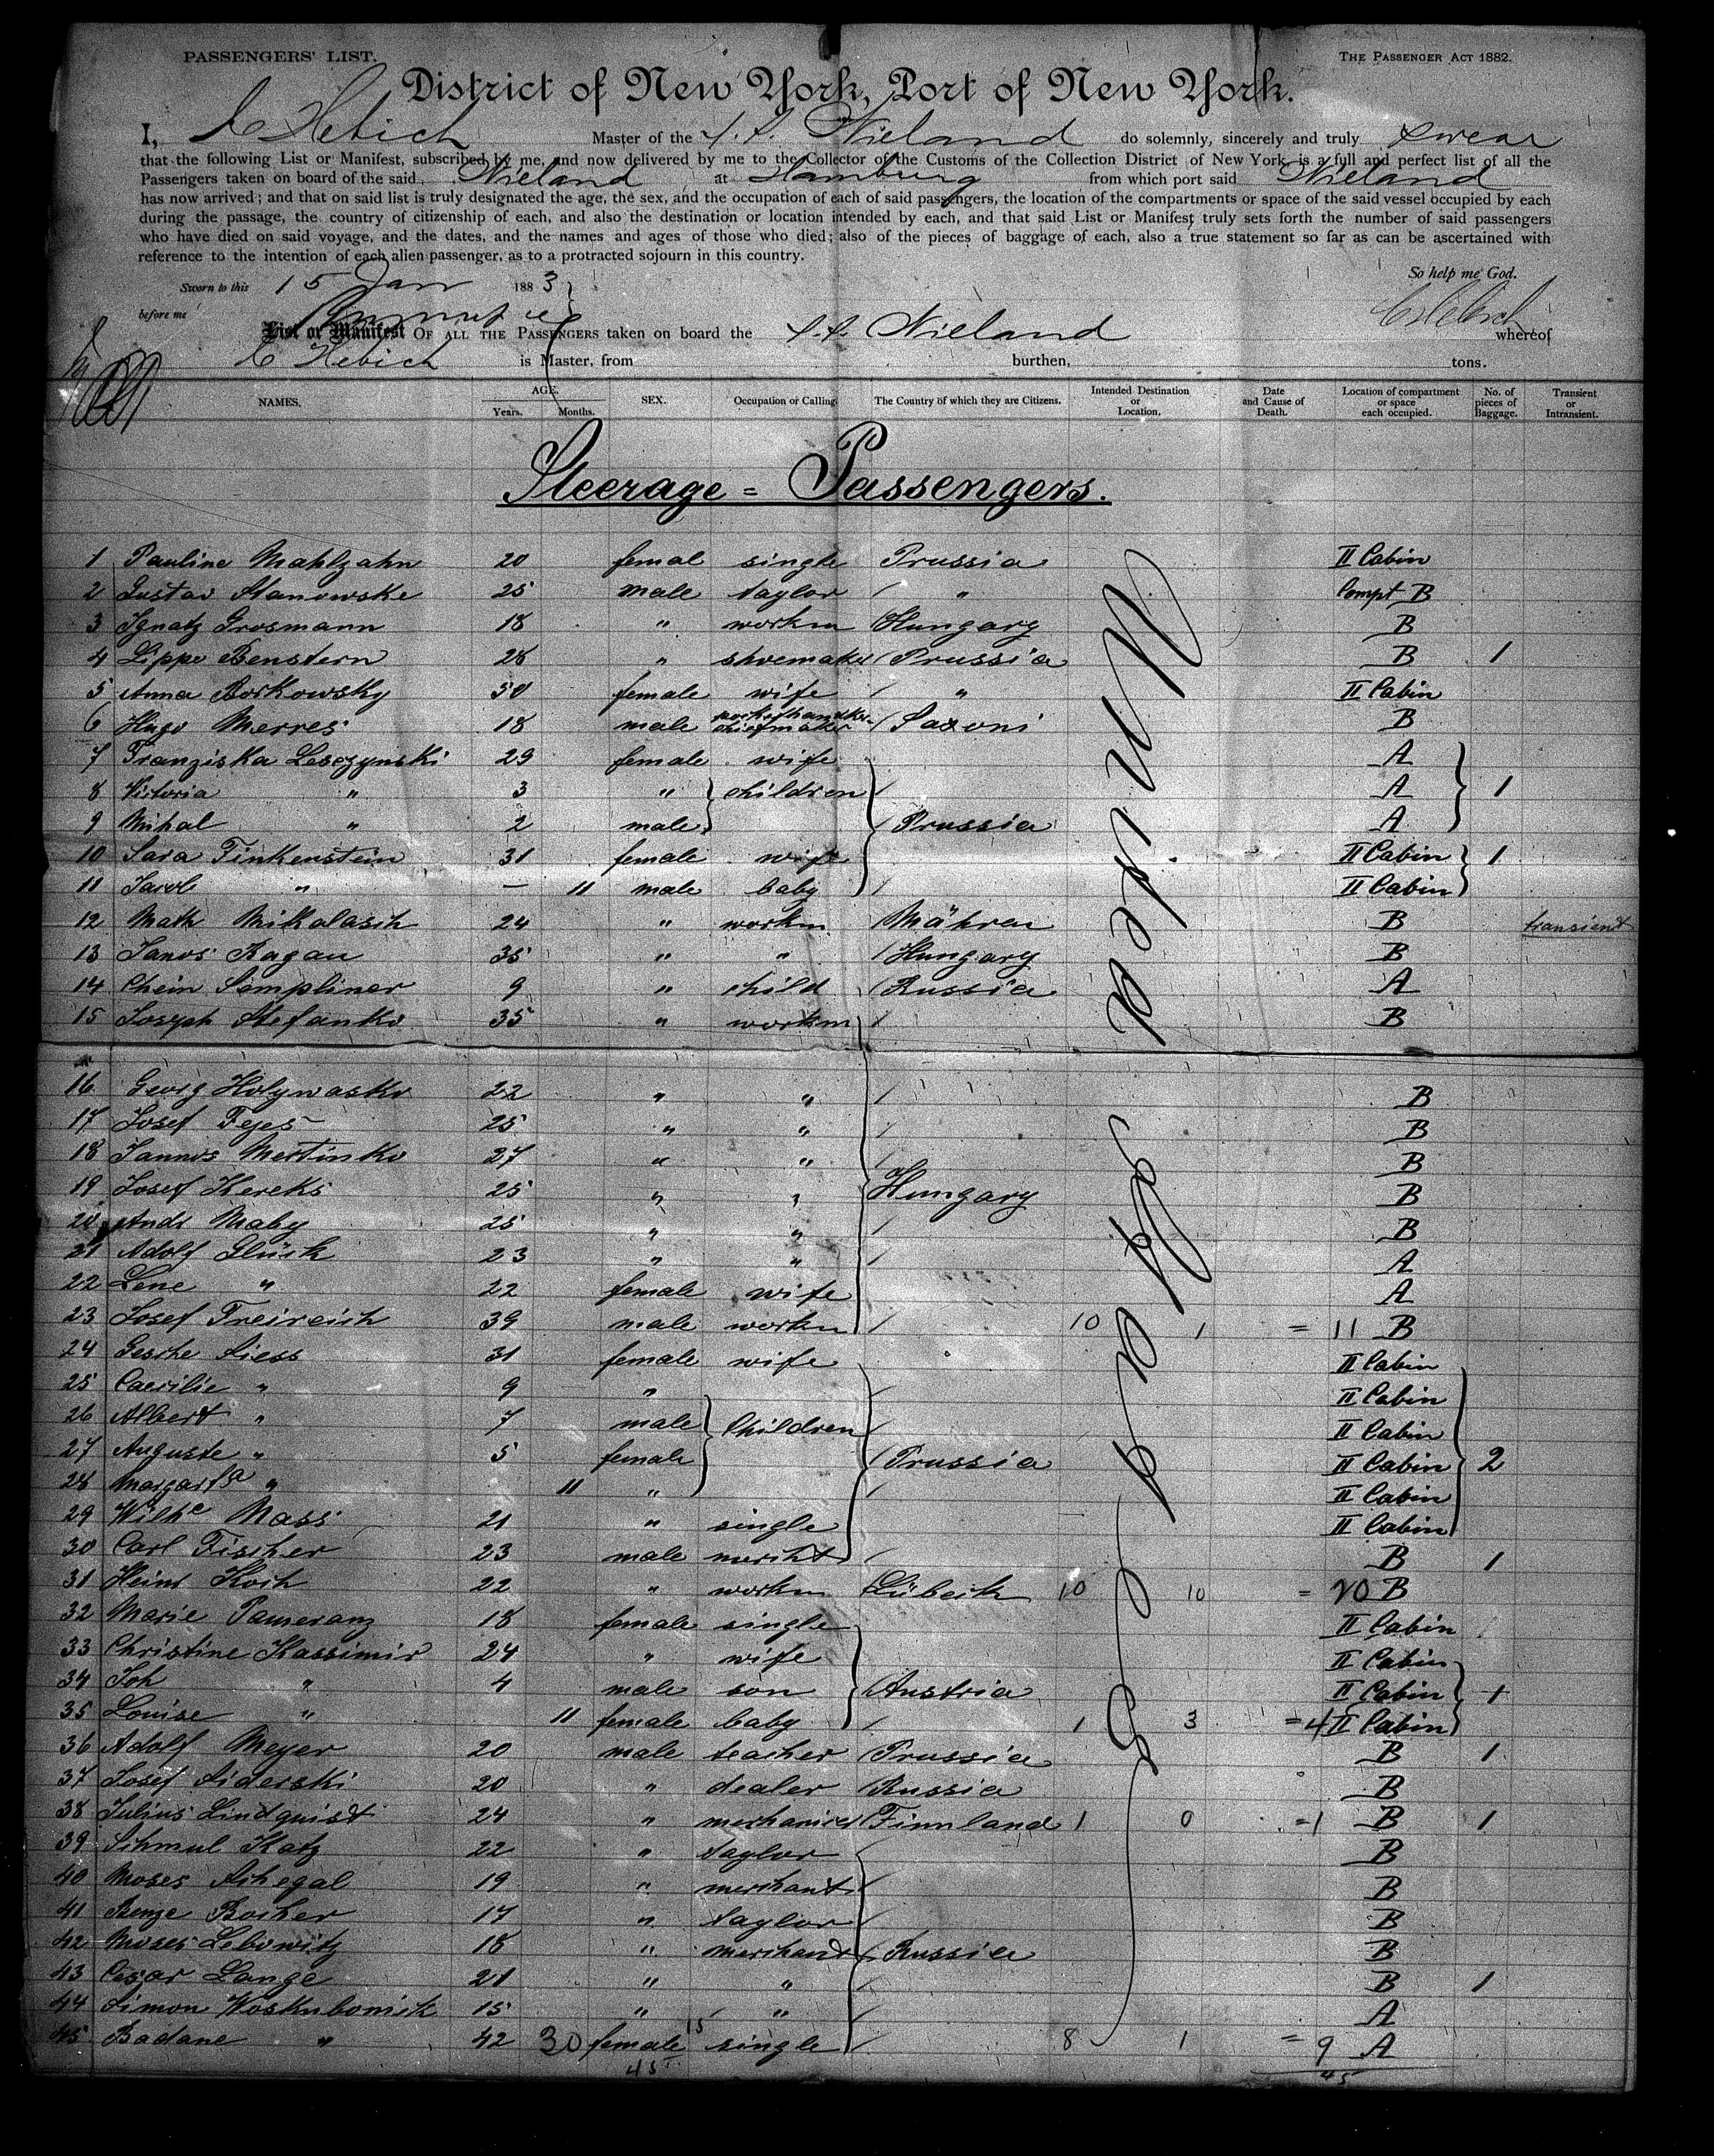 PASSENGERS' LIST. THE PASSENGER ACT 1882.
District of New York, Port of New York.
I, C Hebich Master of the S. S. Wieland do solemnly, sincerely and truly swear
that the following List or Manifest, subscribed by me, and now delivered by me to the Collector of the Customs of the Collection District of New York, is a full and perfect list of all the
Passengers taken on board of the said Wieland at Hamburg from which port said Wieland
has now arrived; and that on said list is truly designated the age, the sex, and the occupation of each of said passengers, the location of the compartments or space of the said vessel occupied by each
during the passage, the country of citizenship of each, and also the destination or location intended by each, and that said List or Manifest truly sets forth the number of said passengers
who have died on said voyage, and the dates, and the names and ages of those who died; also of the pieces of baggage of each, also a true statement so far as can be ascertained with
reference to the intention of each alien passenger, as to a protracted sojourn in this country.
So help me God.
Sworn to this 15 Jan 1883
before me C Hebich
List or Manifest OF ALL THE PASSENGERS taken on board the S. S. Wieland whereof
C Hebich is Master, from burthen, tons.
NAMES. AGE. Years. Months. SEX. Occupation or Calling. The Country of which they are Citizens. Intended Destination or Location. Date and Cause of Death. Location of compartment or space each occupied. No. of pieces of Baggage. Transient or Intransient.
Steerage = Passengers.
1 Pauline Mahlzahn 20 femal single Prussia II Cabin
2 Gustav Stanowske 25 male taylor " Compt B
3 Ignatz Grosmann 18 " workm Hungary B
4 Lippe Benstern 28 " shoemaker Prussia B 1
5 Anna Borkowsky 50 female wife " II Cabin
6 Hugo Merres 18 male Saxoni B
7 Franziska Lesczynski 29 female wife A
8 Victoria " 3 " children A 1
9 Mihal " 2 male Prussia A
10 Sara Finkenstein 31 female wife II Cabin 1
11 Jacob " — 11 male baby II Cabin
12 Math Mikolasch 24 " workm Mähren B transient
13 Janos Bagau 35 " " Hungary B
14 Chein Sempliner 9 " child Russia A
15 Joseph Stefanko 35 " workm B
16 Georg Holywasko 22 " " B
17 Josef Fejes 25 " " B
18 Jannos Mertinko 27 " " B
19 Josef Kereks 25 " " Hungary B
20 Andr Maby 25 " " B
21 Adolf Glück 23 " " A
22 Lene " 22 female wife A
23 Josef Freireich 39 male workm 10 1 = 11 B
24 Gesche Siess 31 female wife II Cabin
25 Caecilie " 9 " II Cabin
26 Albert " 7 male Children II Cabin
27 Auguste " 5 female Prussia II Cabin 2
28 Margarta " 11 " II Cabin
29 Wilhe Mass 21 " single II Cabin
30 Carl Fischer 23 male mercht B 1
31 Heinr Koch 22 " workm Lübeck 10 10 = 20 B
32 Marie Pameranz 18 female single II Cabin
33 Christine Kassimir 24 " wife II Cabin
34 Joh " 4 male son Austria II Cabin 1
35 Louise " 11 female baby 1 3 = 4 II Cabin
36 Adolf Meyer 20 male teacher Prussia B 1
37 Josef Siderski 20 " dealer Russia B
38 Julius Lindquist 24 " mechanicer Finnland 1 0 =1 B 1
39 Schmul Katz 22 " taylor B
40 Moses Schegal 19 " merchant B
41 Benze Bocher 17 " taylor B
42 Moses Lebowitz 18 " merchand Russia B
43 Cesar Lange 21 " " B 1
44 Simon Woskubomik 15 " " A
45 Badane " 42 30 female 15 single 8 1 = 9 A
45 45
United States